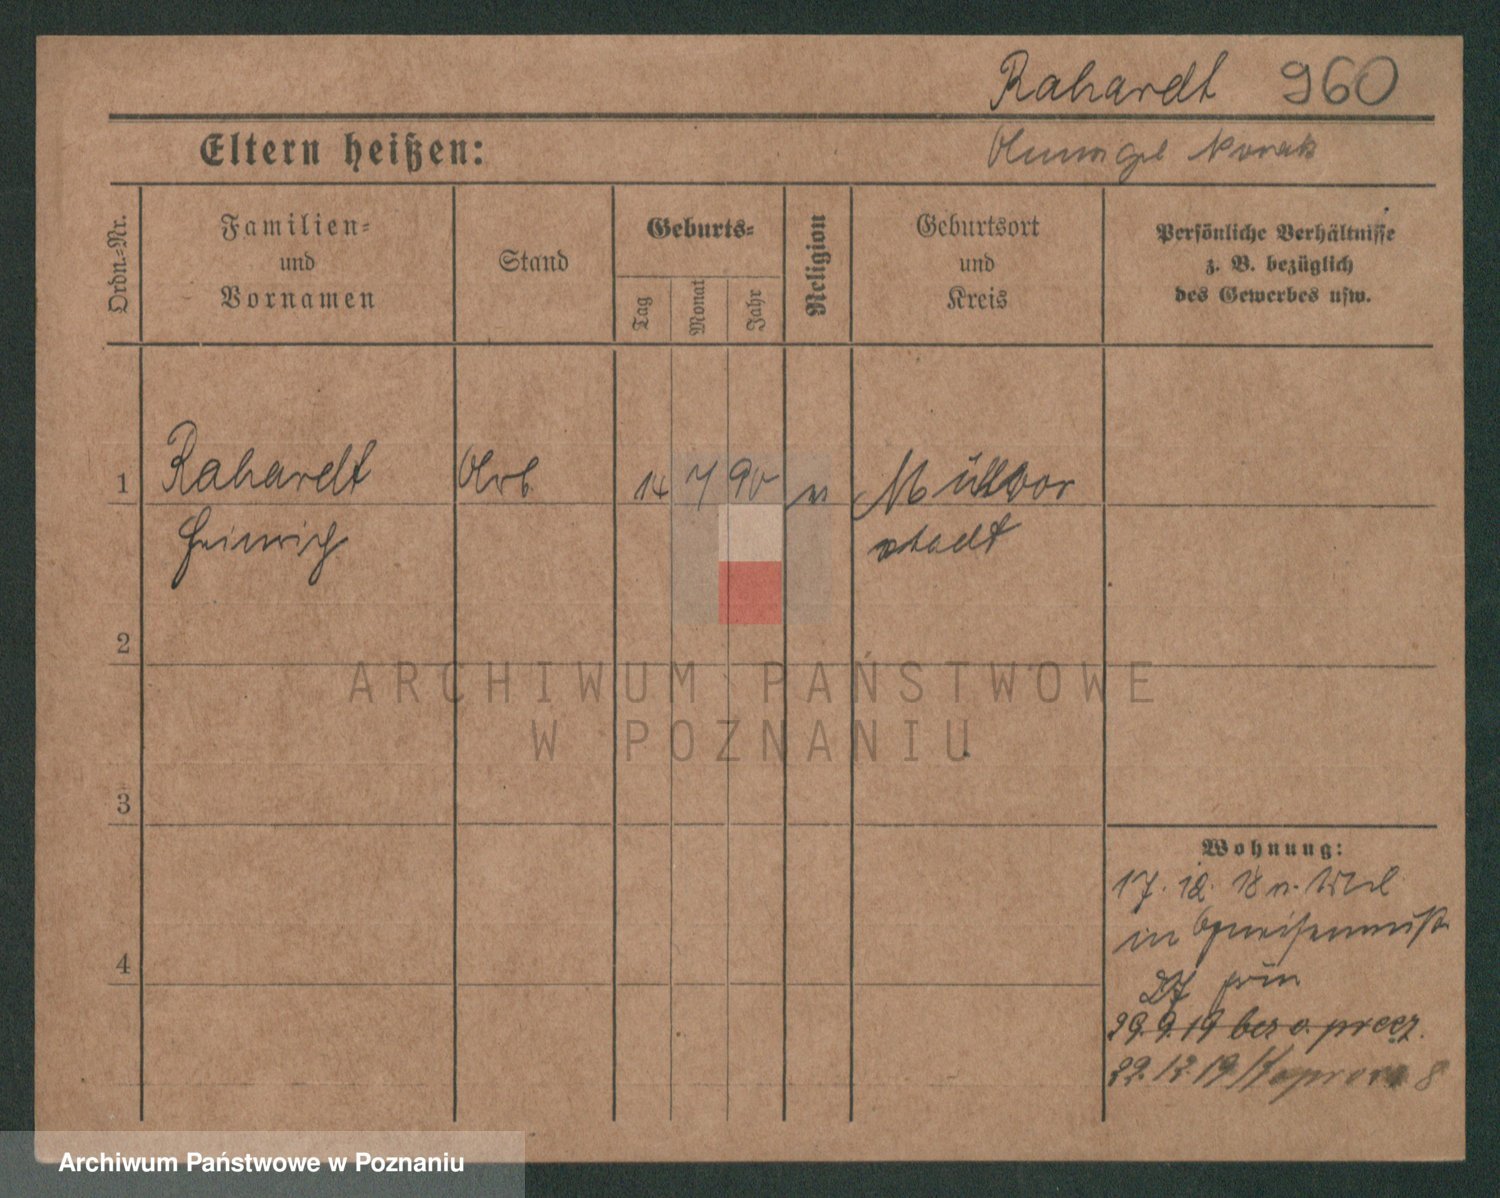 Rahardt 960
Eltern heißen:
Ordn.-Nr.
Familien-
und
Vornamen
Stand
Geburts-
Tag
Monat
Jahr
Religion
Geburtsort
und
Kreis
Persönliche Verhältnisse
z. B. bezüglich
des Gewerbes usw.
1
Rahardt
Arb
14
7
90
Heinrich
stadt
2
ARCHIWUM PAŃSTWOWE
W POZNANIU
3
4
Wohnung:
17. 12. 18
in
27
29.9.19
22.12.19 8
Archiwum Państwowe w Poznaniu